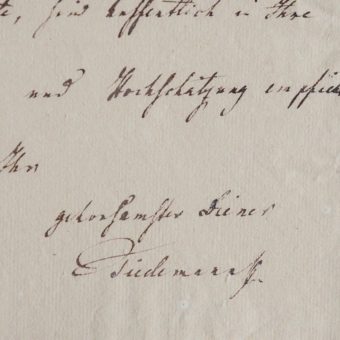 sind hoffentlich in Ihre
und Hochschätzung empfiehlt
Ihr
gehorsamster Diener
Tiedemann